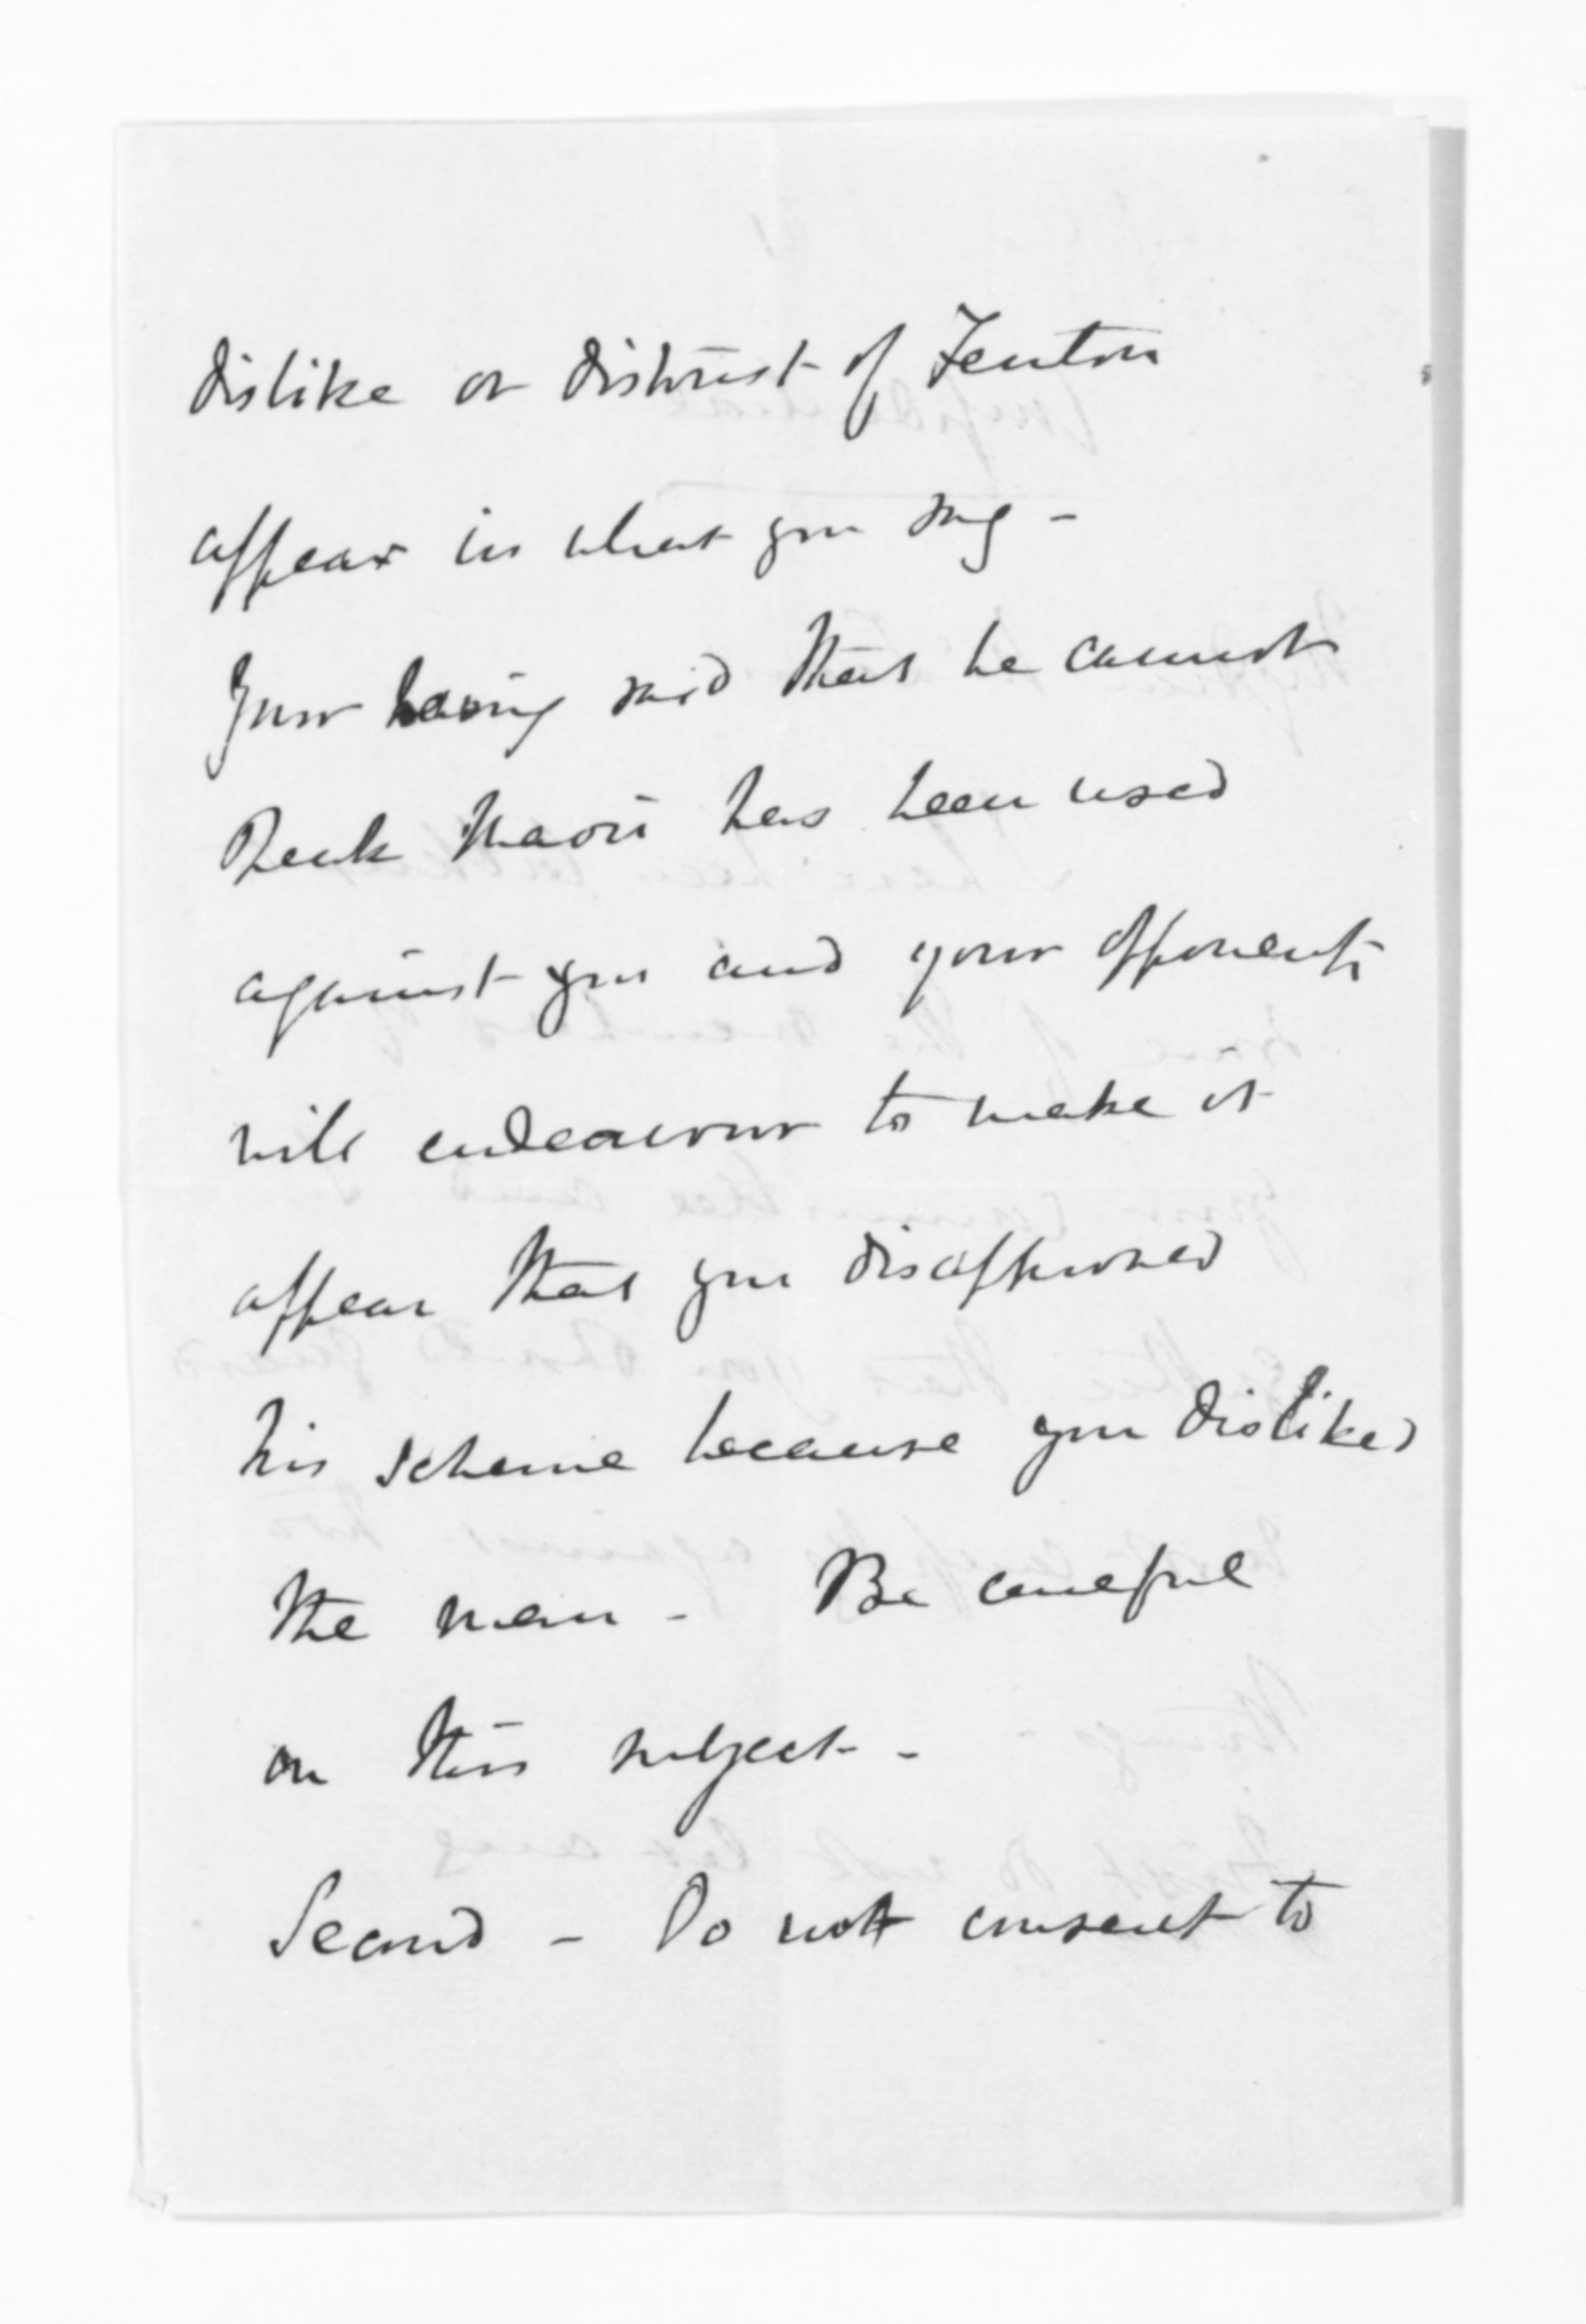 dislike or distrust of Fenton
appear in what you say -
Your having said that he cannot
speak Maori has been used
against you and your opponents
will endeavour to make it
appear that you disapproved
his scheme because you disliked
the man - Be careful
on this subject -
Second - Do not consent to